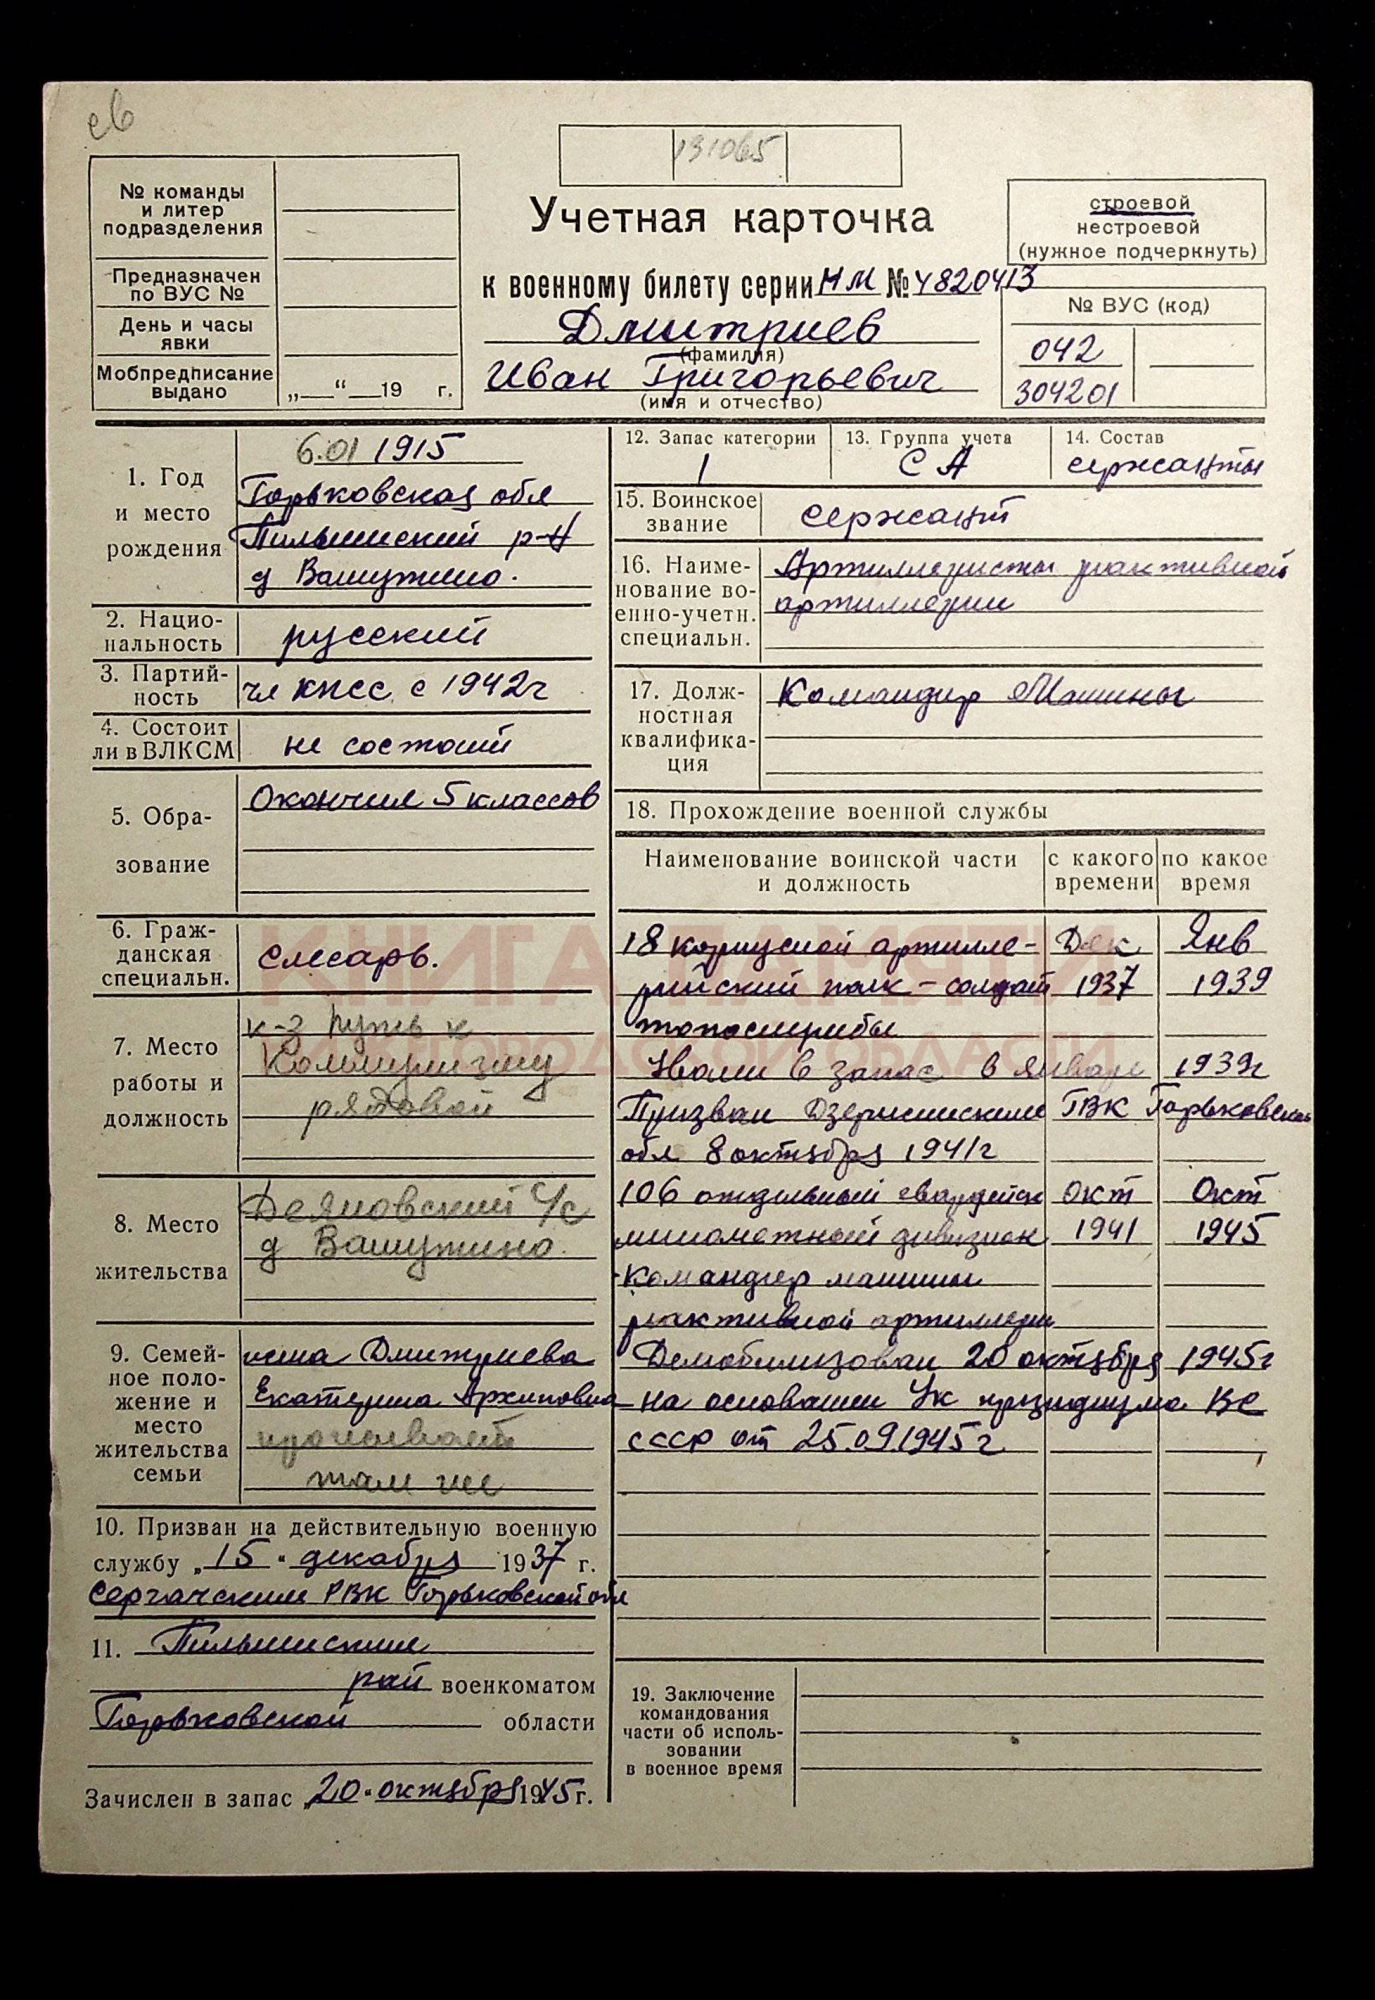 св
131065
№ команды
и литер
подразделения
Предназначен
по ВУС №
День и часы
явки
Мобпредписание
выдано
„ “ 19 г.
Учетная карточка
к военному билету серии НМ № 4820413
Дмитриев
(фамилия)
Иван Григорьевич
(имя и отчество)
строевой
нестроевой
(нужное подчеркнуть)
№ ВУС (код)
042
304201
1. Год
и место
рождения
6.01 1915
Горьковская обл
Пильнинский р-н
д Вашутино.
2. Нацио-
нальность
русский
3. Партий-
ность
чл КПСС с 1942г
4. Состоит
ли в ВЛКСМ
не состоит
5. Обра-
зование
Окончил 5 классов
6. Граж-
данская
специальн.
слесарь.
7. Место
работы и
должность
к-з Путь к
Коммунизму
рядовой
8. Место
жительства
Деяновский с/с
д Вашутино.
9. Семей-
ное поло-
жение и
место
жительства
семьи
жена Дмитриева
Екатерина Архиповна
проживает
там же
10. Призван на действительную военную
службу „15“ декабря 1937 г.
Сергачским РВК Горьковской обл
11. Пильнинским
рай военкоматом
Горьковской области
Зачислен в запас „20“ октября 1945 г.
12. Запас категории
1
13. Группа учета
СА
14. Состав
сержанты
15. Воинское
звание
сержант
16. Наиме-
нование во-
енно-учетн.
специальн.
Артиллеристы реактивной
артиллерии
17. Долж-
ностная
квалифика-
ция
Командир Машины
18. Прохождение военной службы
Наименование воинской части
и должность
с какого
времени
по какое
время
18 корпусной артилле- Дек Янв
рийский полк - солдат 1937 1939
топослужбы
Уволен в запас в январе 1939г
Призван Дзержинским ГВК Горьковской
обл 8 октября 1941г
106 отдельный гвардейск окт Окт
минометный дивизион 1941 1945
командир машины
реактивной артиллери
Демобилизован 20 октября 1945г
на основании Ук президиума ВС
СССР от 25.09.1945г
19. Заключение
командования
части об исполь-
зовании
в военное время
КНИГА ПАМЯТИ
НИЖЕГОРОДСКОЙ ОБЛАСТИ